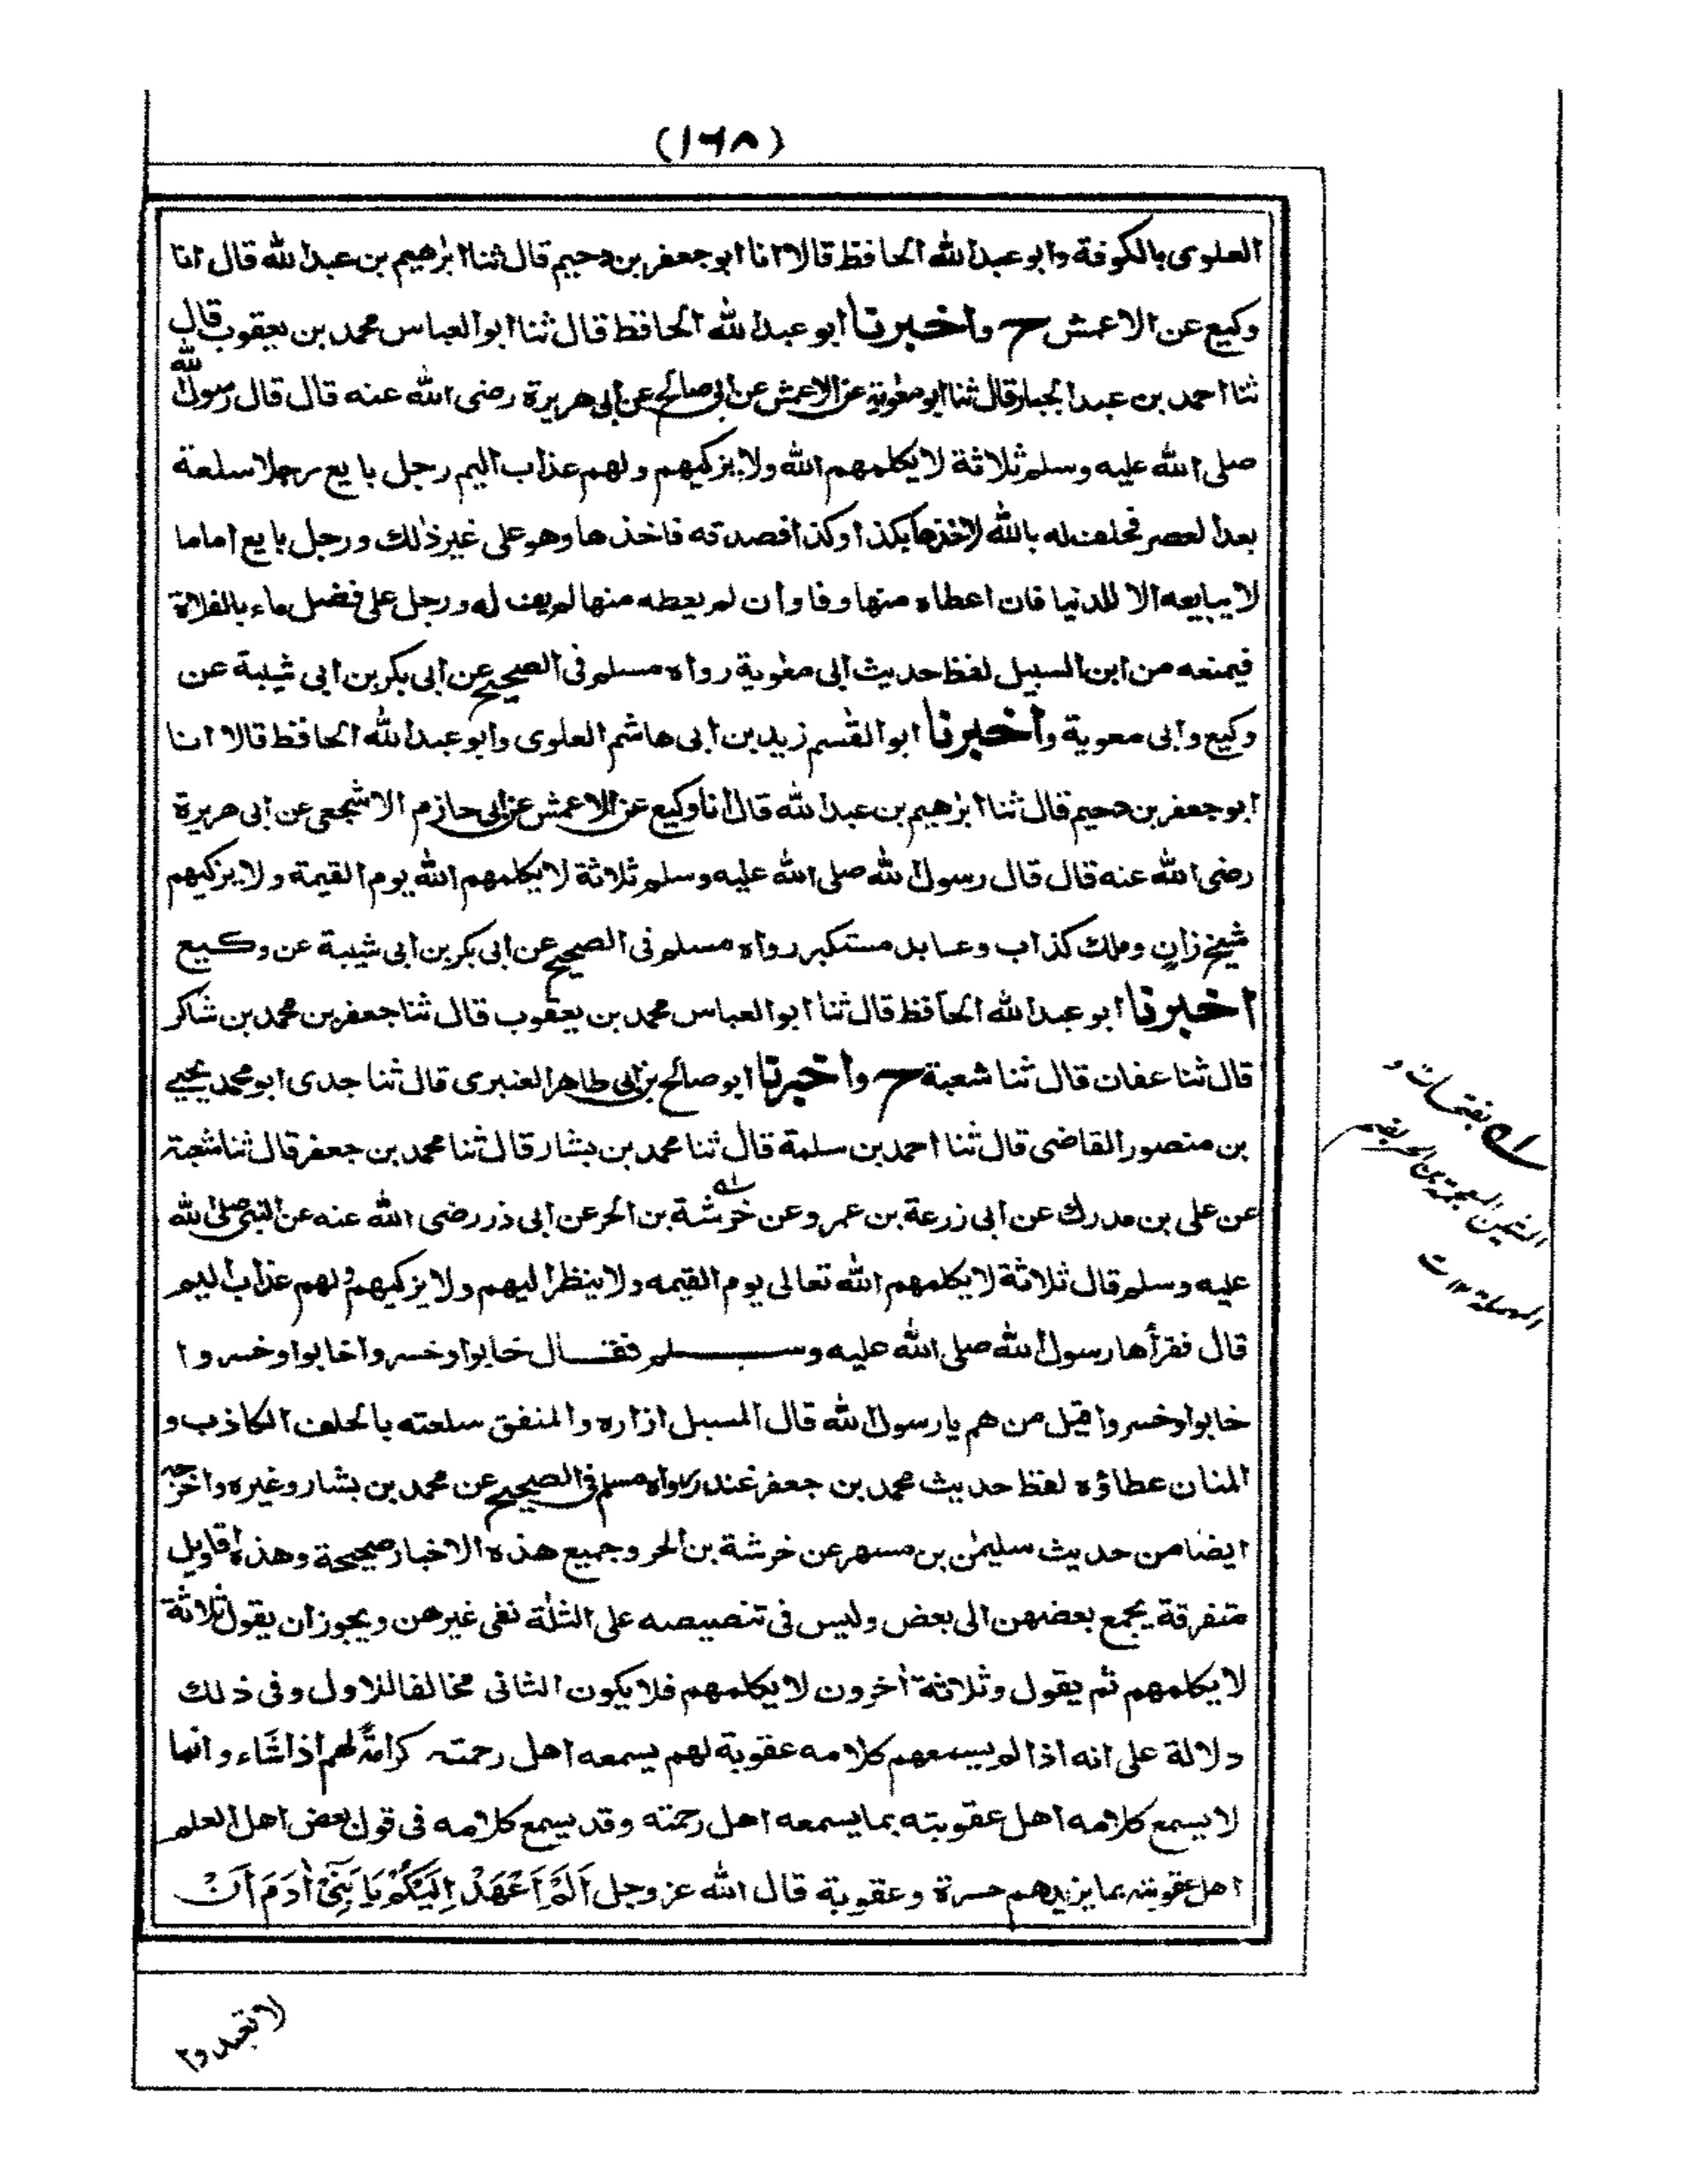 (١٦٨)
العلوى بالكوفة وابو عبد الله الحافظ قالا انا ابو جعفر بن دحيم قال ثنا ابرٰهيم بن عبد الله قال انا
وكيع عن الاعمش ح واخبرنا ابو عبد الله الحافظ قال ثنا ابو العباس محمد بن يعقوب قال
ثنا احمد بن عبد الجبار قال ثنا ابو معٰوية عن الاعمش عن ابى صالح عن ابى هريرة رضى الله عنه قال قال رسول الله
صلى الله عليه وسلم ثلاثة لا يكلمهم الله ولا يزكيهم ولهم عذاب اليم رجل بايع رجلا سلعة
بعد العصر فحلف له بالله لاخذها بكذا وكذا فصدقه فاخذها وهو على غير ذٰلك ورجل بايع اماما
لا يبايعه الا للدنيا فان اعطاه منها وفا وان لم يعطه منها لم يف له ورجل على فضل ماء بالفلاة
فيمنعه من ابن السبيل لفظ حديث ابى معٰوية رواه مسلم فى الصحيح عن ابى بكر بن ابى شيبة عن
وكيع وابى معوية واخبرنا ابو القٰسم زيد بن ابى هاشم العلوى وابو عبد الله الحافظ قالا انا
ابو جعفر بن دحيم قال ثنا ابرٰهيم بن عبد الله قال انا وكيع عن الاعمش عن ابى حازم الاشجعى عن ابى هريرة
رضى الله عنه قال قال رسول الله صلى الله عليه وسلم ثلاثة لا يكلمهم الله يوم القيمة ولا يزكيهم
شيخ زانٍ وملك كذاب وعابد مستكبر رواه مسلم فى الصحيح عن ابى بكر بن ابى شيبة عن وكيع
اخبرنا ابو عبد الله الحافظ قال ثنا ابو العباس محمد بن يعقوب قال ثنا جعفر بن محمد بن شاكر
قال ثنا عفان قال ثنا شعبة ح واخبرنا ابو صالح بن ابى طاهر العنبرى قال ثنا جدى ابو محمد يحيى
بن منصور القاضى قال ثنا احمد بن سلمة قال ثنا محمد بن بشار قال ثنا محمد بن جعفر قال ثنا شعبة
عن على بن مدرك عن ابى زرعة بن عمرو عن خرشة بن الحر عن ابى ذر رضى الله عنه عن النبى صلى الله
عليه وسلم قال ثلاثة لا يكلمهم الله تعالى يوم القيمه ولا ينظر اليهم ولا يزكيهم ولهم عذاب اليم
قال فقرأها رسول الله صلى الله عليه وسلم فقال خابوا وخسروا خابوا وخسروا
خابوا وخسروا قيل من هم يا رسول الله قال المسبل ازاره والمنفق سلعته بالحلف الكاذب و
المنان عطاؤه لفظ حديث محمد بن جعفر غندر رواه مسلم فى الصحيح عن محمد بن بشار وغيره واخرجه
ايضا من حديث سليمٰن بن مسهر عن خرشة بن الحر وجميع هذه الاخبار صحيحة وهذه اقاويل
متفرقة يجمع بعضهن الى بعض وليس فى تنصيصه على الثلٰثة نفى غيرهن ويجوز ان يقول ثلاثة
لا يكلمهم ثم يقول وثلاثة اٰخرون لا يكلمهم فلا يكون الثانى مخالفا للاول وفى ذلك
دلالة على انه اذا لم يسمعهم كلامه عقوبة لهم يسمعه اهل رحمته كرامةً لهم اذا شاء وانما
لا يسمع كلامه اهل عقوبته بما يسمعه اهل رحمته وقد يسمع كلامه فى قول بعض اهل العلم
اهل عقوبته بما يزيدهم حسرة وعقوبة قال الله عز وجل اَلَمْ اَعْهَدْ اِلَيْكُمْ يَا بَنِىْٓ اٰدَمَ اَنْ
لا تعبدوا
له بفتحات و
الشين المعجمة بن الحر بضم
المهملة ١٢ ت